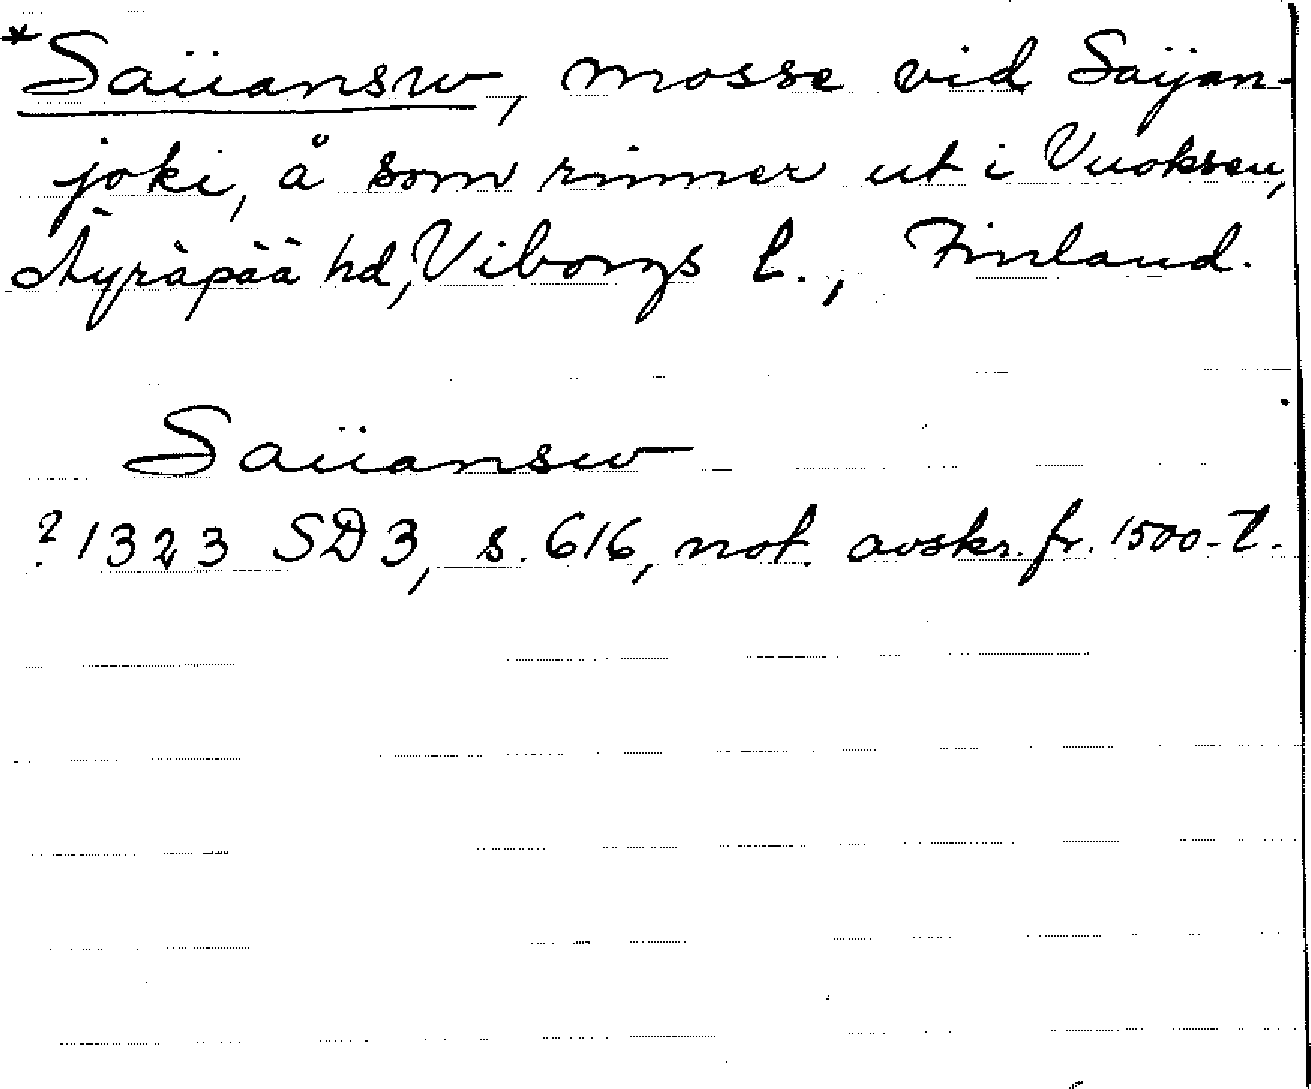 *Saiiansw, mosse vid Saijan-
joki, å som rinner ut i Vuoksen,
Äyräpää hd, Viborgs l., Finland.
Saiiansw
? 1323 SD 3, s. 616, not. avskr. fr. 1500-t.